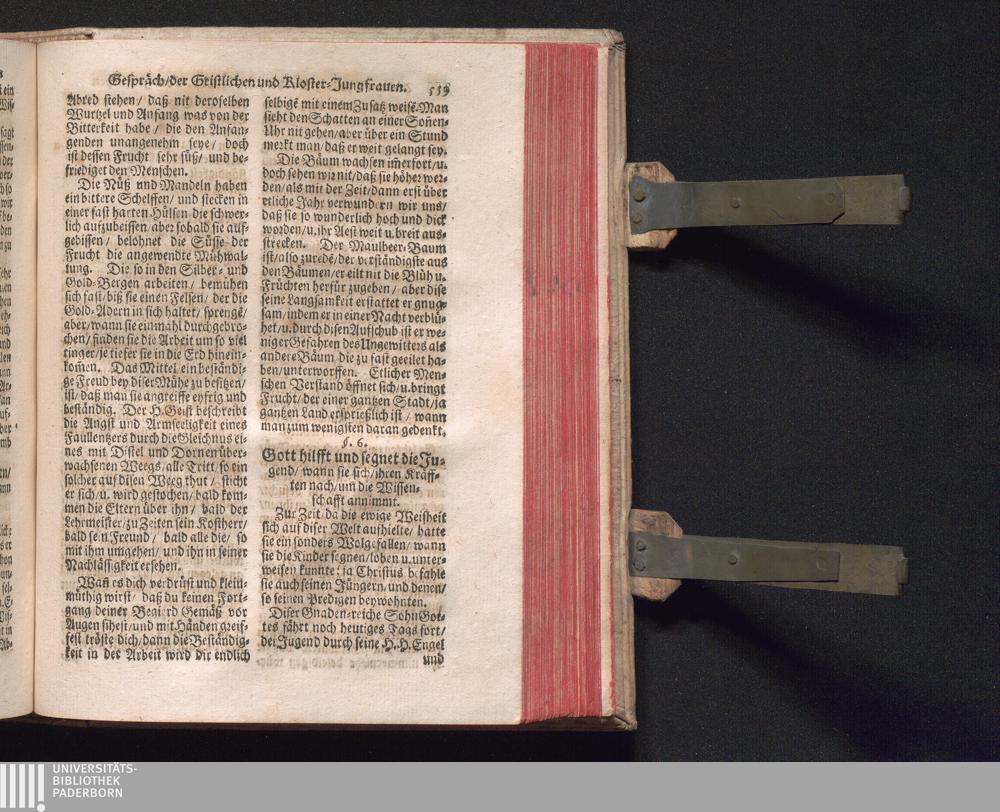 Gespräch/der Geistlichen und Kloster-Jungfrauen. 559
Abred stehen/ daß nit deroselben
Wurtzel und Anfang was von der
Bitterkeit habe/ die den Anfan-
genden unangenehm seye/ doch
ist dessen Frucht sehr süß/ und be-
friediget den Menschen.
Die Nüß und Mandeln haben
ein bittere Schelffen/ und stecken in
einer fast harten Hülsen die schwer-
lich aufzubeissen/ aber sobald sie auf-
gebissen/ belohnet die Süsse der
Frucht die angewendte Mühwal-
tung. Die so in den Silber- und
Gold-Bergen arbeiten/ bemühen
sich fast/ biß sie einen Felsen/ der die
Gold-Adern in sich haltet/ sprengē/
aber/ wann sie einmahl durchgebro-
chen/ finden sie die Arbeit um so viel
ringer/ je tiefer sie in die Erd hinein-
kom̄en. Das Mittel ein beständi-
ge Freud bey diser Mühe zu besitzen/
ist/ daß man sie angreiffe eyfrig und
beständig. Der H. Geist beschreibt
die Angst und Armseeligkeit eines
Faullentzers durch die Gleichnus ei-
nes mit Distel und Dornen über-
wachsenen Weegs/ alle Tritt/ so ein
solcher auf disen Weeg thut/ sticht
er sich/ u. wird gestochen/ bald kom-
men die Eltern über ihn/ bald der
Lehrmeister/ zu Zeiten sein Kostherr/
bald sein Freund/ bald alle die/ so
mit ihm umgehen/ und ihn in seiner
Nachlässigkeit ersehen.
Wañ es dich verdrüst und klein-
müthig wirst/ daß du keinen Fort-
gang deiner Begierd Gemäß vor
Augen sihest/ und mit Händen greif-
fest/ tröste dich/ dann die Beständig-
keit in der Arbeit wird dir endlich
selbigē mit einem Zusatz weisē. Man
sieht den Schatten an einer Soñen-
Uhr nit gehen/ aber über ein Stund
merkt man/ daß er weit gelangt sey.
Die Bäum wachsen im̄erfort/ u.
doch sehen wir nit/ daß sie höher wer-
den/ als mit der Zeit/ dann erst über
etliche Jahr verwundern wir uns/
daß sie so wunderlich hoch und dick
worden/ u. ihr Aest weit u. breit aus-
strecken. Der Maulbeer-Baum
ist/ also zu redē/ der verständigste aus
den Bäumen/ er eilt nit die Blüh u.
Früchten herfür zugeben/ aber dise
seine Langsamkeit erstattet er gnug-
sam/ indem er in einer Nacht verblü-
het/ u. durch disen Aufschub ist er we-
niger Gefahren des Ungewitters als
andere Bäum/ die zu fast geeilet ha-
ben/ unterworffen. Etlicher Men-
schen Verstand öffnet sich/ u. bringt
Frucht/ der einer gantzen Stadt/ ja
gantzen Land ersprießlich ist/ wann
man zum wenigsten daran gedenkt.
§. 6.
Gott hilfft und segnet die Ju-
gend/ wann sie sich/ ihren Kräff-
ten nach/ um die Wissen-
schafft annimmt.
Zur Zeit/ da die ewige Weisheit
sich auf diser Welt aufhielte/ hatte
sie ein sonders Wolgefallen/ wann
sie die Kinder segnen/ loben u. unter-
weisen kunnte: ja Christus befahle
sie auch seinen Jüngern/ und denen/
so seinen Predigen beywohnten.
Diser Gnaden-reiche Sohn Got-
tes fährt noch heutiges Tags fort/
der Jugend durch seine H. H. Engel
und
UNIVERSITÄTS-
BIBLIOTHEK
PADERBORN